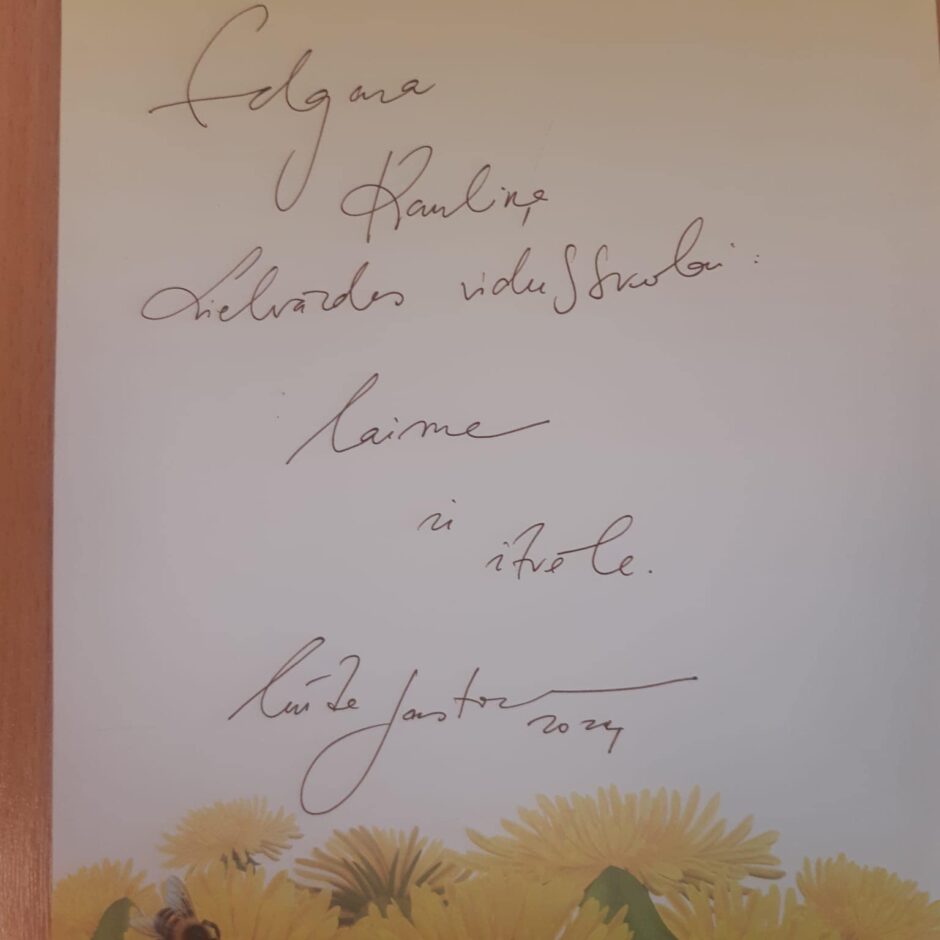 Edgara
Kauliņa
Lielvārdes vidusskolai:
laime
ir
izvēle.
Luīze Pastore
2024